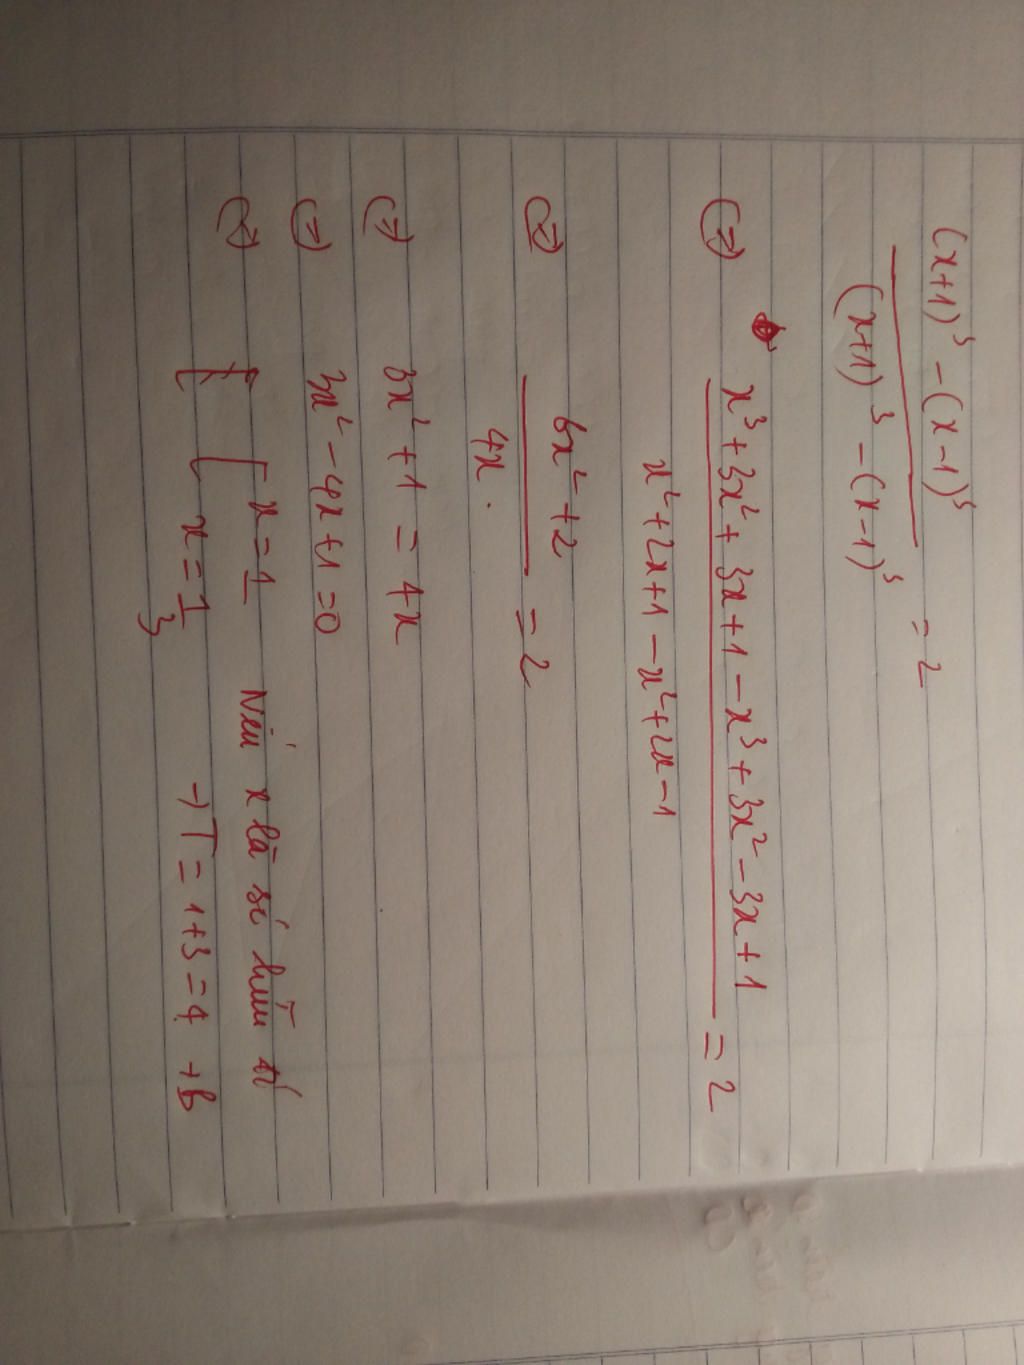 (x+1)³ - (x-1)³
(x+1)³ - (x-1)³ = 2
(=) x³ + 3x² + 3x + 1 - x³ + 3x² - 3x + 1
x² + 2x + 1 - x² + 2x - 1 = 2
(=) 6x² + 2
4x. = 2
(=) 3x² + 1 = 4x
(=) 3x² - 4x + 1 = 0
(=) x = 1 Nếu x là số hữu tỉ
x = 1/3 → T = 1 + 3 = 4 → B